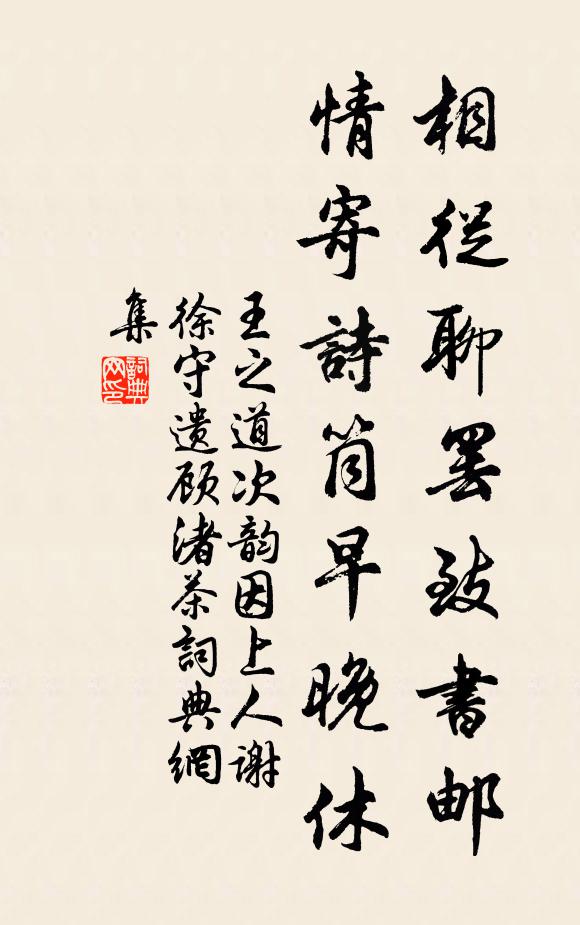 相從聊罢致書邮
情寄詩筒早晚休
王之道次韵因上人谢
徐守遗顾渚茶詞典網
集
詞典
网印